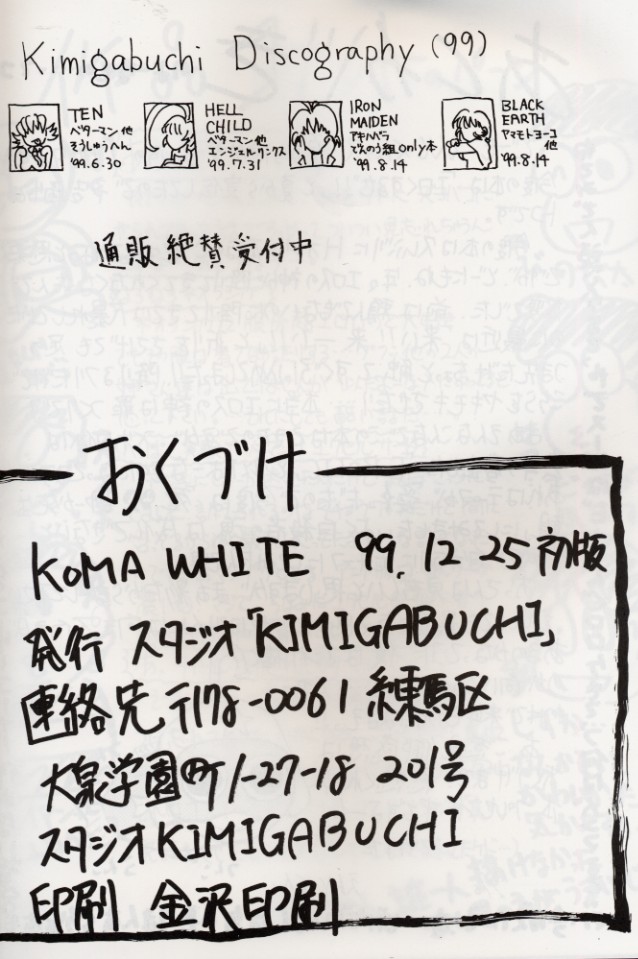 Kimigabuchi Discography (99)
TEN
ベターマン他
そうしゅうへん
'99.6.30
HELL
CHILD
ベターマン他
エンジェルリンクス
'99.7.31
IRON
MAIDEN
アキハバラ
only本
'99.8.14
BLACK
EARTH
ヤマモトヨーコ
他
'99.8.14
通販絶賛受付中
おくづけ
KOMA WHITE 99.12 25 初版
発行 スタジオ「KIMIGABUCHI」
連絡先 〒178-0061 練馬区
大泉学園町1-27-18 201号
スタジオKIMIGABUCHI
印刷 金沢印刷